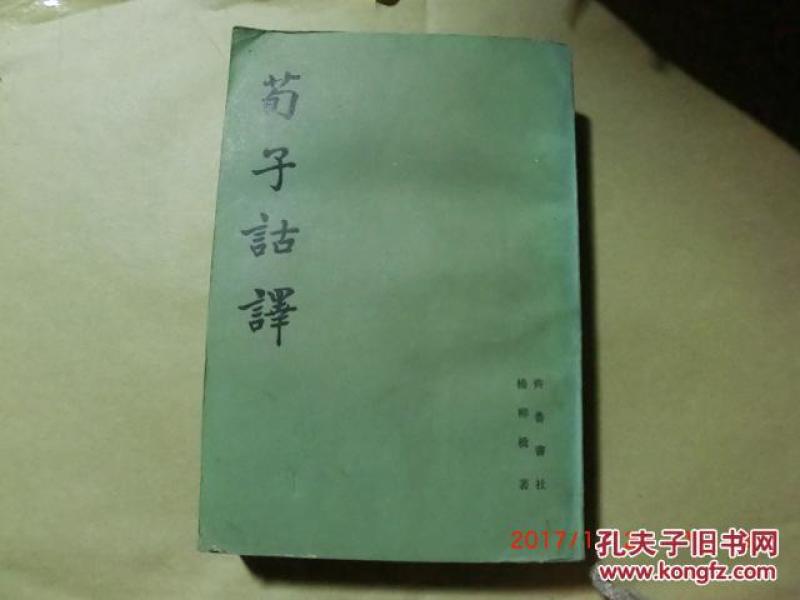 荀子詁譯
齊魯書社
楊柳橋 著
2017/1
孔夫子旧书网
www.kongfz.com